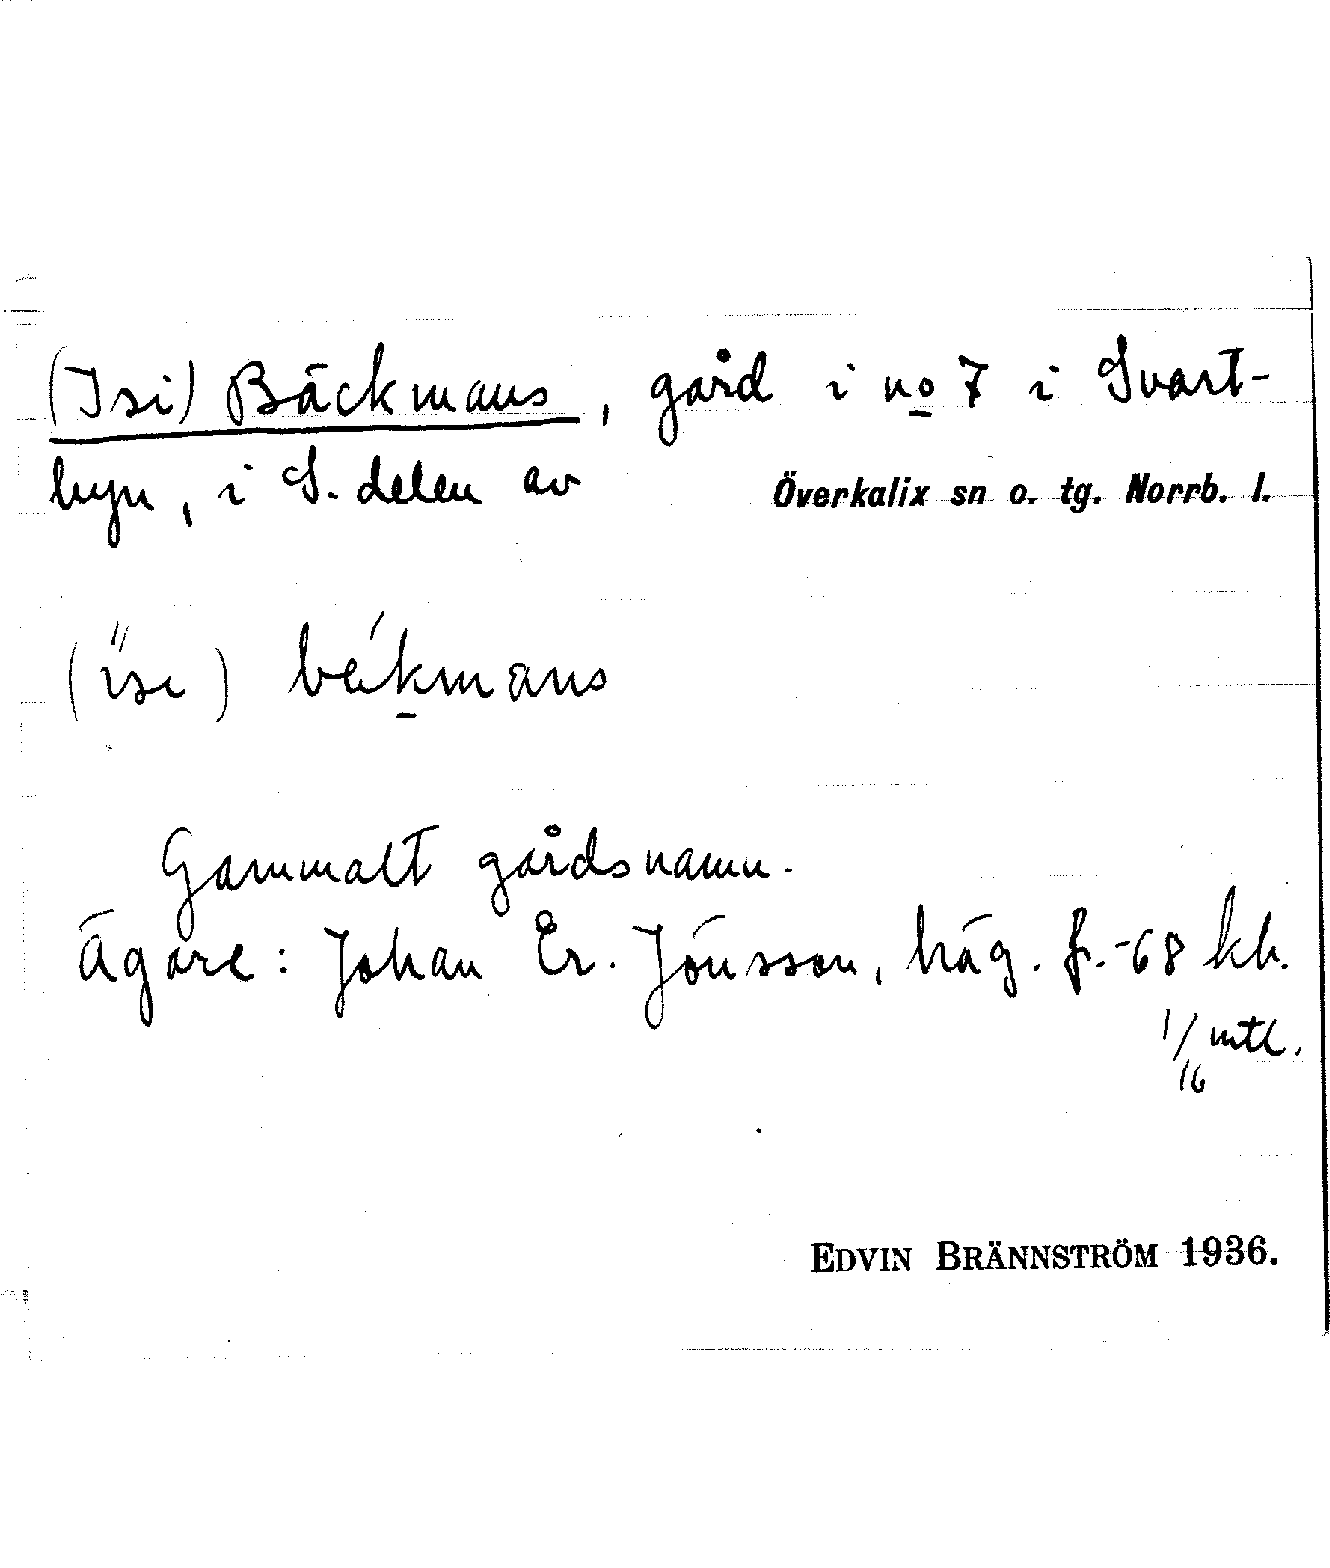 (Isi) Bäckmans, gård i no 7 i Svart-
byn, i S. delen av Överkalix sn o. tg. Norrb. l.
(ı̋sı) békmans
Gammalt gårdsnamn.
Ägare: Johan Er. Jönsson, häg. fr. -68 kh.
1/16 mtl.
EDVIN BRÄNNSTRÖM 1936.